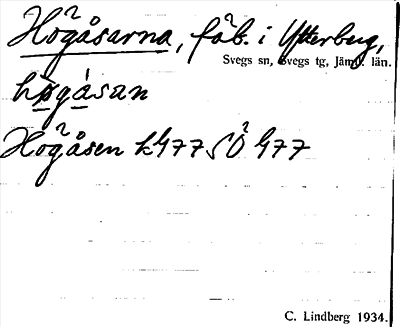 Högåsarna, fäb. i Ytterberg,
Svegs sn, Svegs tg, Jämtl. län.
hø̀gåsan
Högåsen k 477 SÖ 477
C. Lindberg 1934.